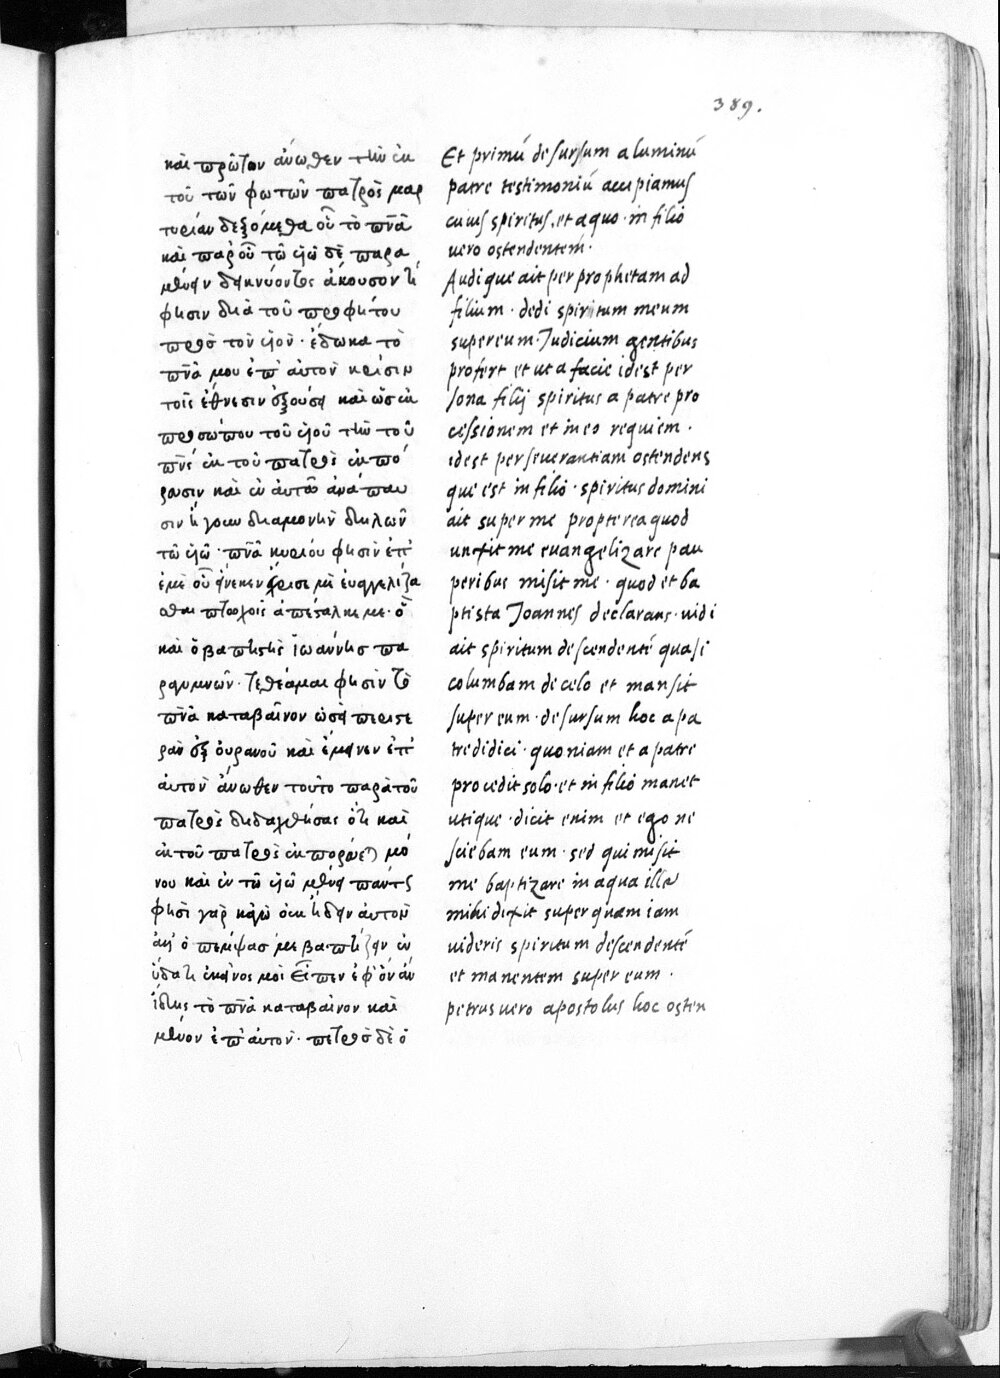 389.
καὶ πρῶτον ἄνωθεν τὴν ἐκ
τοῦ τῶν φωτῶν πατρὸς μαρ
τυρίαν δεξόμεθα οὗ τὸ πν̅α̅
καὶ παρ οὗ τῶ υἱῶ δὲ παρα
δεικνύοντος ἄκουσον τί
φησιν διὰ τοῦ προφήτου
πρὸς τὸν υἱόν · ἔδωκα τὸ
πν̅α̅ μου ἐπ αὐτὸν κρίσιν
τοῖς ἔθνεσιν ἐξοίσει καὶ ὡς ἐκ
προσώπου τοῦ υἱοῦ τὴν τοῦ
πν̅ς̅ ἐκ τοῦ πατρὸς ἐκπό
ρευσιν καὶ ἐν αὐτῶ ἀνάπαυ
σιν ἤγουν διαμονὴν δηλῶν
τῶ υἱῶ · πν̅α̅ κυρίου φησὶν ἐπ
ἐμὲ οὗ εἵνεκεν ἔχρισε μὲ εὐαγγελίζε
σθαι πτωχοῖς ἀπέσταλκε με · ὃ
καὶ ὁ βαπτιστὴς ἰωάννης πα
ραγυμνῶν · τεθέαμαι φησὶν τὸ
πν̅α̅ καταβαῖνον ὡσεὶ περιστε
ρὰν ἐξ οὐρανοῦ καὶ ἔμεινεν ἐπ
αὐτὸν ἄνωθεν τοῦτο παρὰ τοῦ
πατρὸς διδαχθήσας ὅτι καὶ
ἐκ τοῦ πατρὸς ἐκπορεύεται μό
νου καὶ ἐν τῶ υἱῶ μένει πάντως
φησὶ γὰρ καγὼ οὐκ ἤδειν αὐτὸν
ἀλλ ὁ πέμψας με βαπτίζειν ἐν
ὕδατι ἐκεῖνος μοι εἶπεν ἐφ ὃν ἂν
ἴδης τὸ πν̅α̅ καταβαῖνον καὶ
μένον ἐπ αὐτὸν · πέτρος δὲ ὁ
Et primū desursum a luminū
patre testimoniū accipiamus
cuius spiritus, et a quo · in filio
uero ostendentem̄ ·
Audi que ait per prophetam ad
filium · dedi spiritum meum
super eum · Judicium gentibus
profert et ut a facie idest per
sona filij spiritus a patre pro
cessionem et in eo requiem ·
idest perseuerantiam ostendens
que est in filio · spiritus domini
ait super me propterea quod
unxit me euangelizare pau
peribus misit me · quod et ba
ptista Joannes declarans · uidi
ait spiritum descendentē quasi
columbam de celo et mansit
super eum · desursum hoc a pa
tre didici · quoniam et a patre
procedit solo · et in filio manet
utique · dicit enim et ego ne
sciebam eum · sed qui misit
me baptizare in aqua ille
mihi dixit super quem iam
uideris spiritum descendentē
et manentem super eum ·
petrus uero apostolus hoc osten